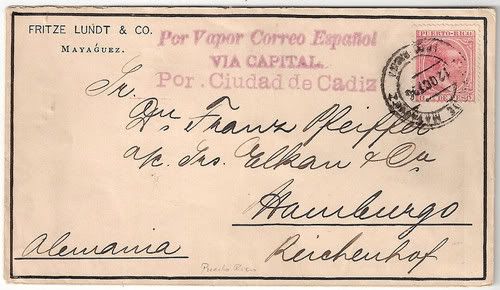 FRITZE LUNDT & CO.
MAYAGÜEZ.
Por Vapor Correo Español
VIA CAPITAL.
Por. Ciudad de Cadiz
PUERTO-RICO
12 OCT 96
DE MAYAGUEZ
Sr.
Dn. Franz Pfeiffer
a/c. Srs. Elkan & Co
Hamburgo
Reichenhof
Alemania
Puerto Rico